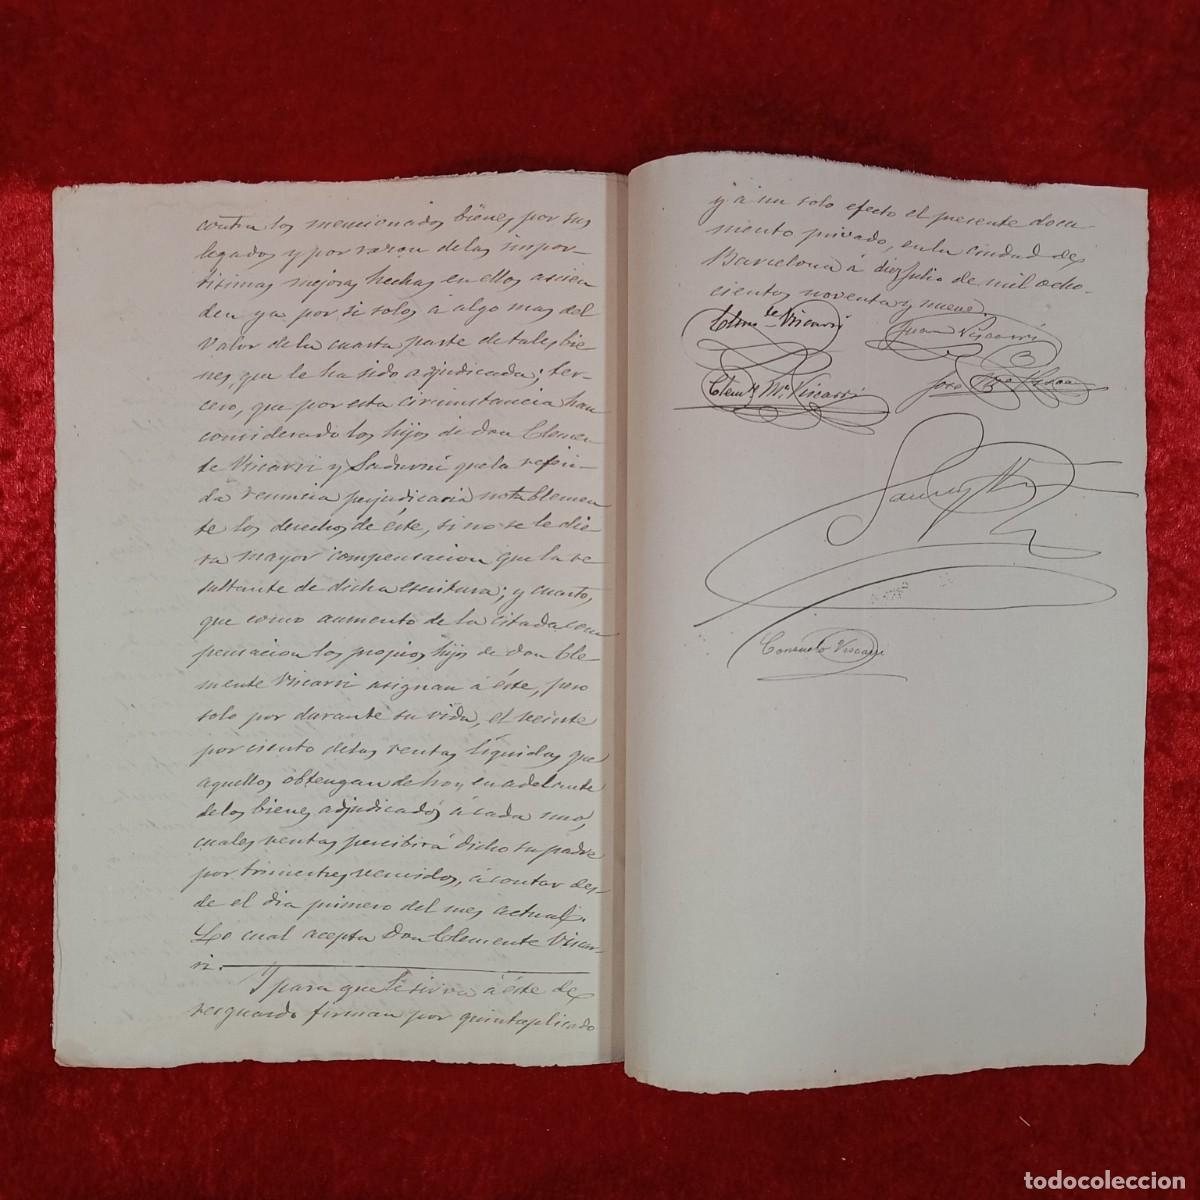 contra los mencionados bienes por sus
legados y por razon de las impor-
titimas mejoras hechas en ellos ascien
den ya por si solos á algo mas del
valor de la cuarta parte de tales bie-
nes, que le ha sido adjudicada; ter-
cero, que por esta circunstancia han
considerado los hijos de don Clemen-
te Viscarri y Sadurní que la referi-
da renuncia perjudicaria notablemen
te los derechos de éste, si no se le die-
ra mayor compensacion que la re
sultante de dicha escritura; y cuarto,
que como aumento de la citada com
pensacion los propios hijos de don Cle-
mente Viscarri asignan á éste, pero
solo por durante su vida, el veinte
por ciento de las rentas líquidas que
aquellos obtengan de hoy en adelante
de los bienes adjudicados á cada uno,
cuales rentas percibirá dicho su padre
por trimestres vencidos, á contar des-
de el dia primero del mes actual.
Lo cual acepta Don Clemente Viscar-
ri.
Y para que le sirva á éste de
resguardo firman por quintuplicado
y á un solo efecto el presente docu-
mento privado, en la ciudad de
Barcelona á diez Julio de mil ocho-
cientos noventa y nueve.
Clemte Viscarri
Juan Viscarri
Clemte Ma Viscarri
José
Consuelo Viscarri
todocoleccion